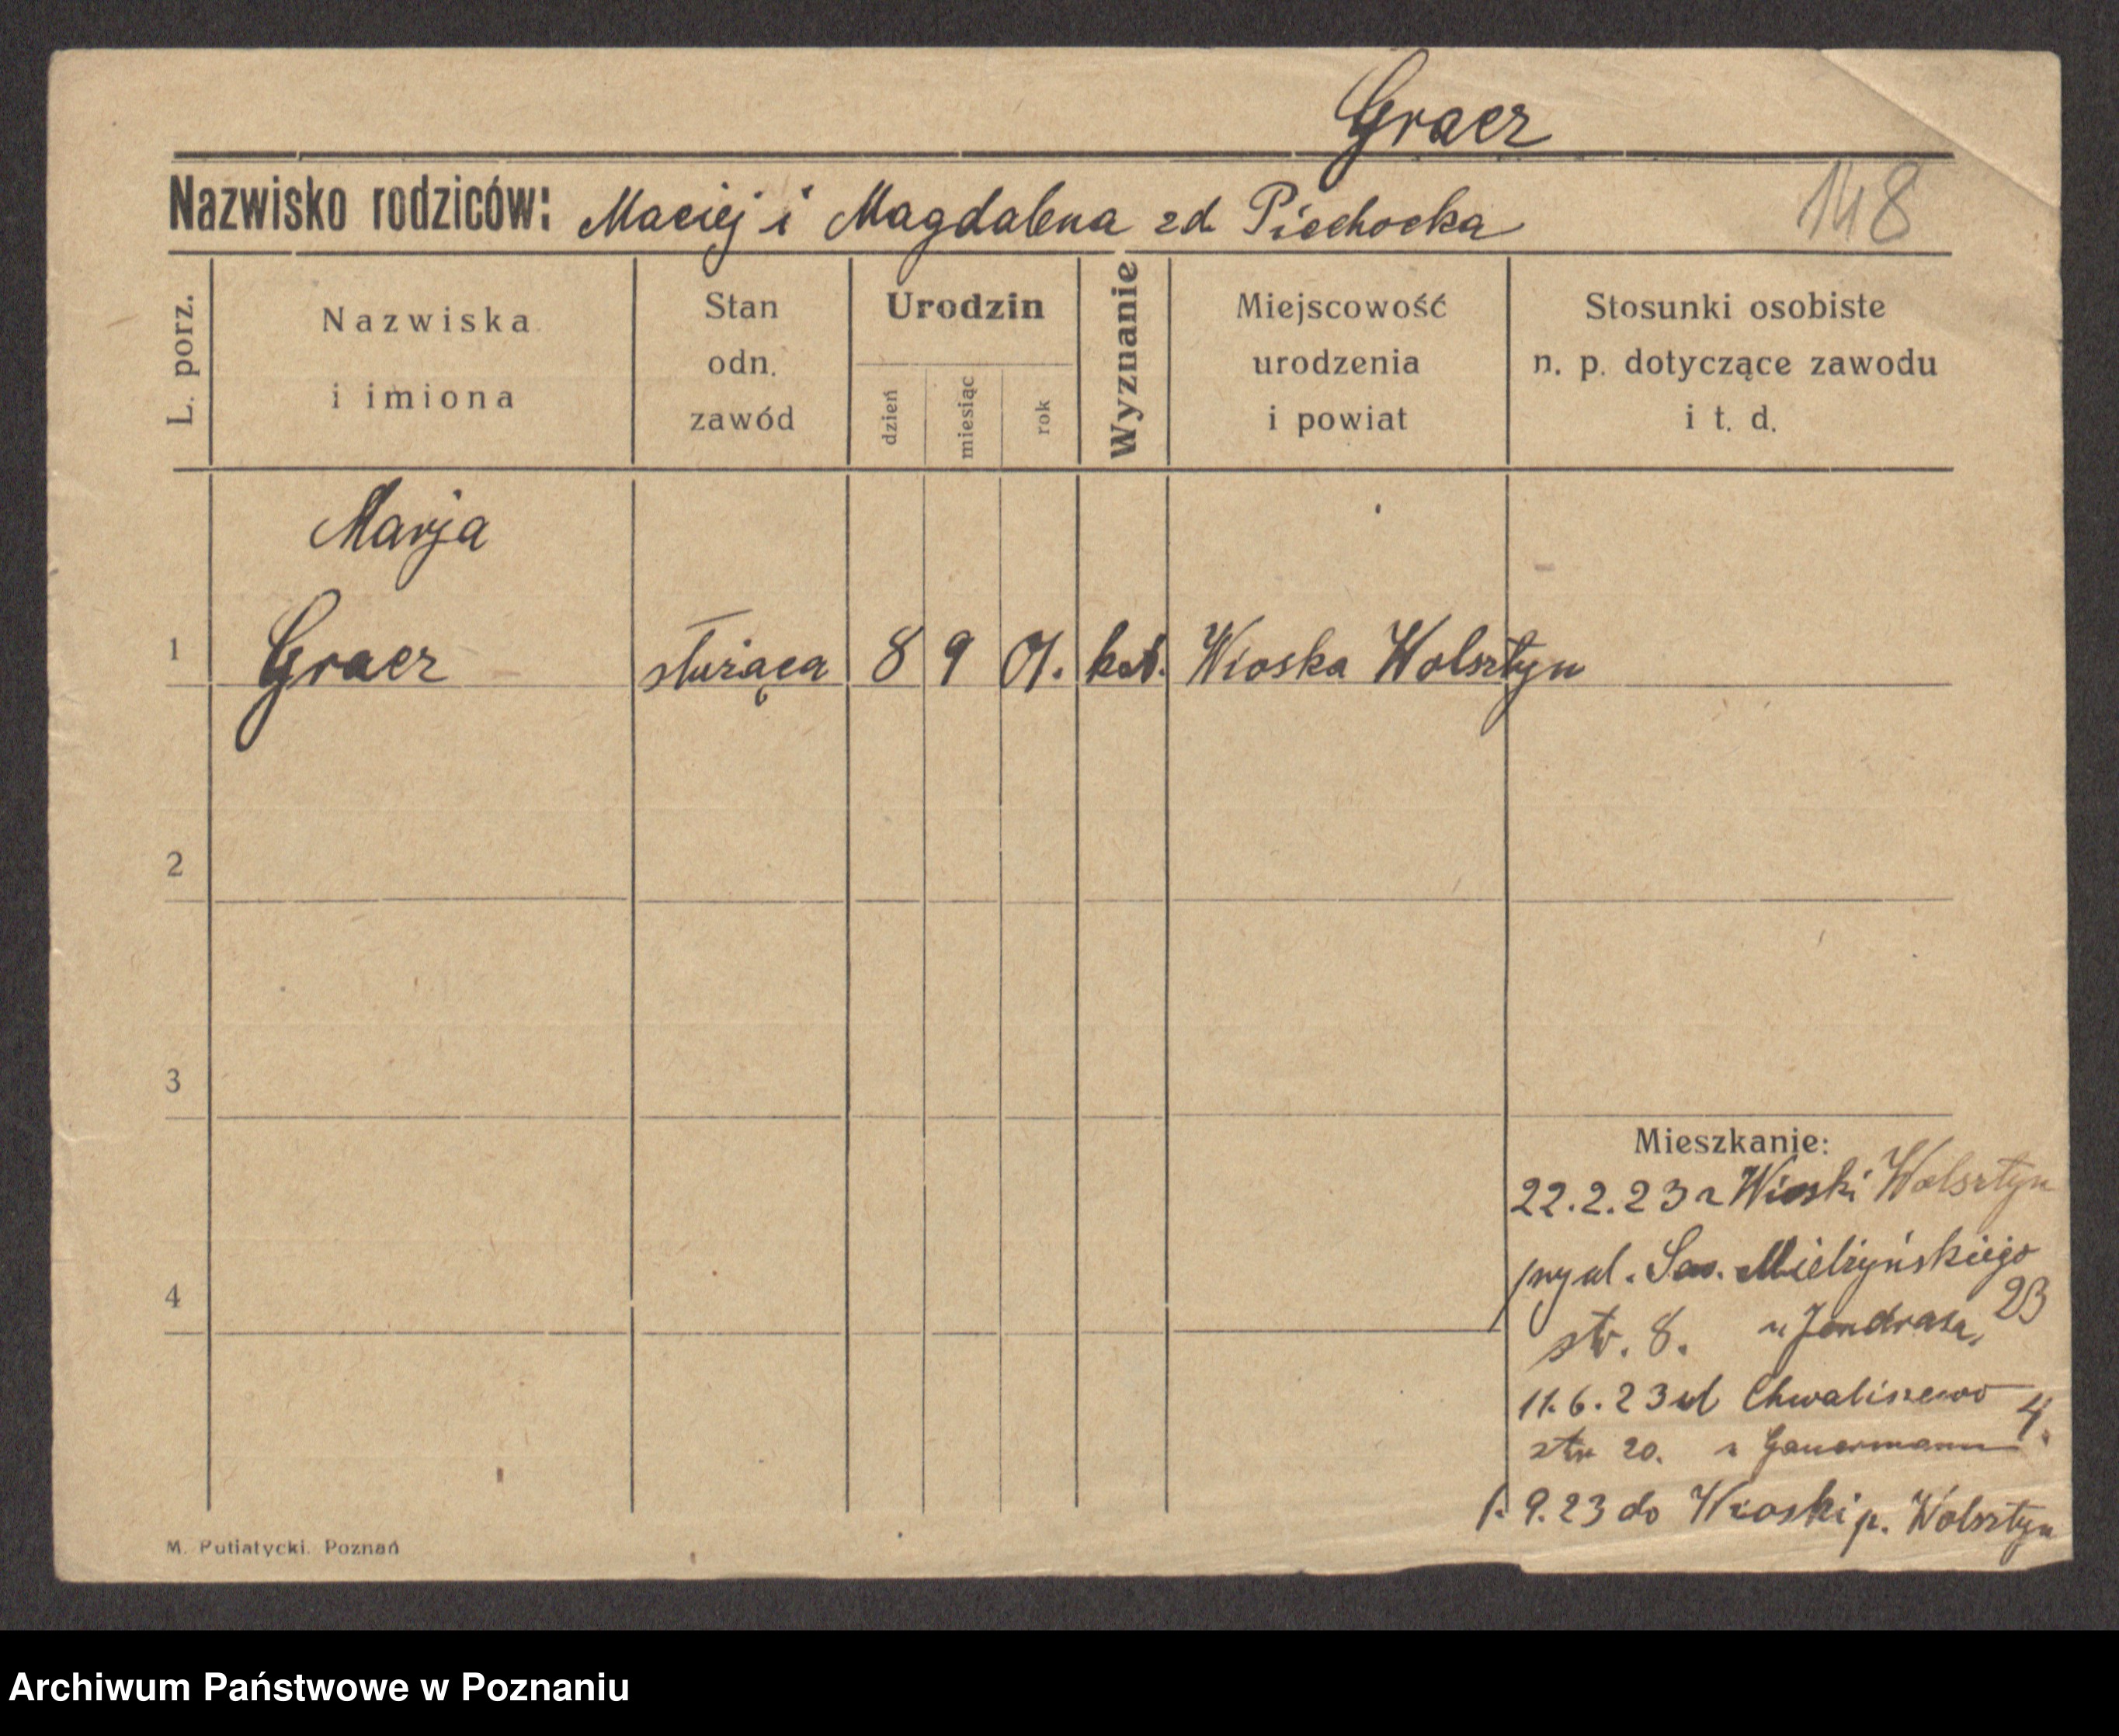 Gracz
Nazwisko rodziców: Maciej i Magdalena zd. Piechocka
148
L. porz.
Nazwiska
i imiona
Stan
odn.
zawód
Urodzin
dzień
miesiąc
rok
Wyznanie
Miejscowość
urodzenia
i powiat
Stosunki osobiste
n. p. dotyczące zawodu
i t. d.
Marja
1 Gracz służąca 8 9 01. kat. Wioska Wolsztyn
2
3
4
Mieszkanie:
22.2.23 z Wioski Wolsztyn
Mielżyńskiego
23
str. 8. u Jendrasza,
11.6.23 ul Chwaliszewo 4.
str 20. u
1.9.23 do Wioski p. Wolsztyn
M. Putiatycki. Poznań
Archiwum Państwowe w Poznaniu